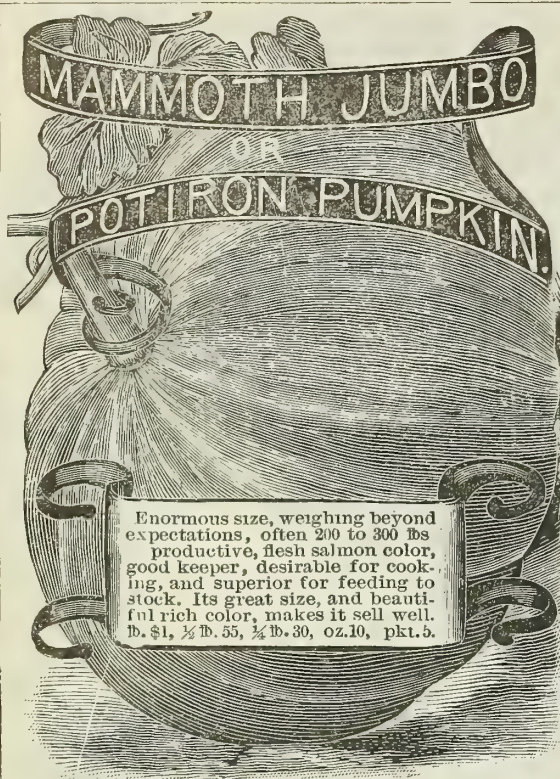 MAMMOTH JUMBO
OR
POTIRON PUMPKIN.
Enormous size, weighing beyond
expectations, often 200 to 300 lbs
productive, flesh salmon color,
good keeper, desirable for cook-
ing, and superior for feeding to
stock. Its great size, and beauti-
ful rich color, makes it sell well.
lb. $1, ½ lb. 55, ¼ lb. 30, oz. 10, pkt. 5.